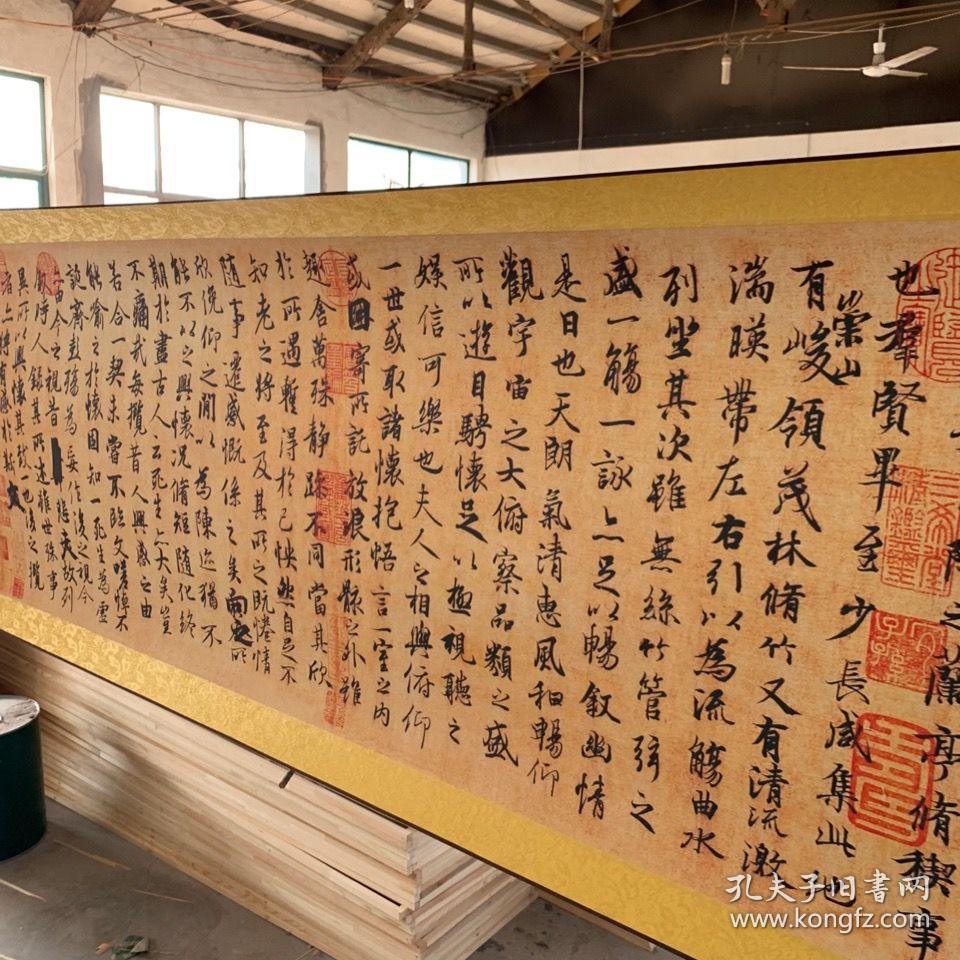 陰之蘭亭脩稧事
也羣賢畢至少長咸集此地
有崇山峻領茂林脩竹又有清流激
湍暎帶左右引以為流觴曲水
列坐其次雖無絲竹管弦之
盛一觴一詠亦足以暢叙幽情
是日也天朗氣清惠風和暢仰
觀宇宙之大俯察品類之盛
所以遊目騁懷足以極視聽之
娛信可樂也夫人之相與俯仰
一世或取諸懷抱悟言一室之內
或因寄所託放浪形骸之外雖
趣舍萬殊靜躁不同當其欣
於所遇蹔得於己怏然自足不
知老之將至及其所之既惓情
隨事遷感慨係之矣向之所
欣俛仰之閒以為陳迹猶不
能不以之興懷況脩短隨化終
期於盡古人云死生亦大矣豈
不痛哉每攬昔人興感之由
若合一契未嘗不臨文嗟悼不
能喻之於懷固知一死生為虛
誕齊彭殤為妄作後之視今
亦由今之視昔悲夫故列
敘時人錄其所述雖世殊事
異所以興懷其致一也後之攬
者亦將有感於斯文
孔夫子旧書网
www.kongfz.com